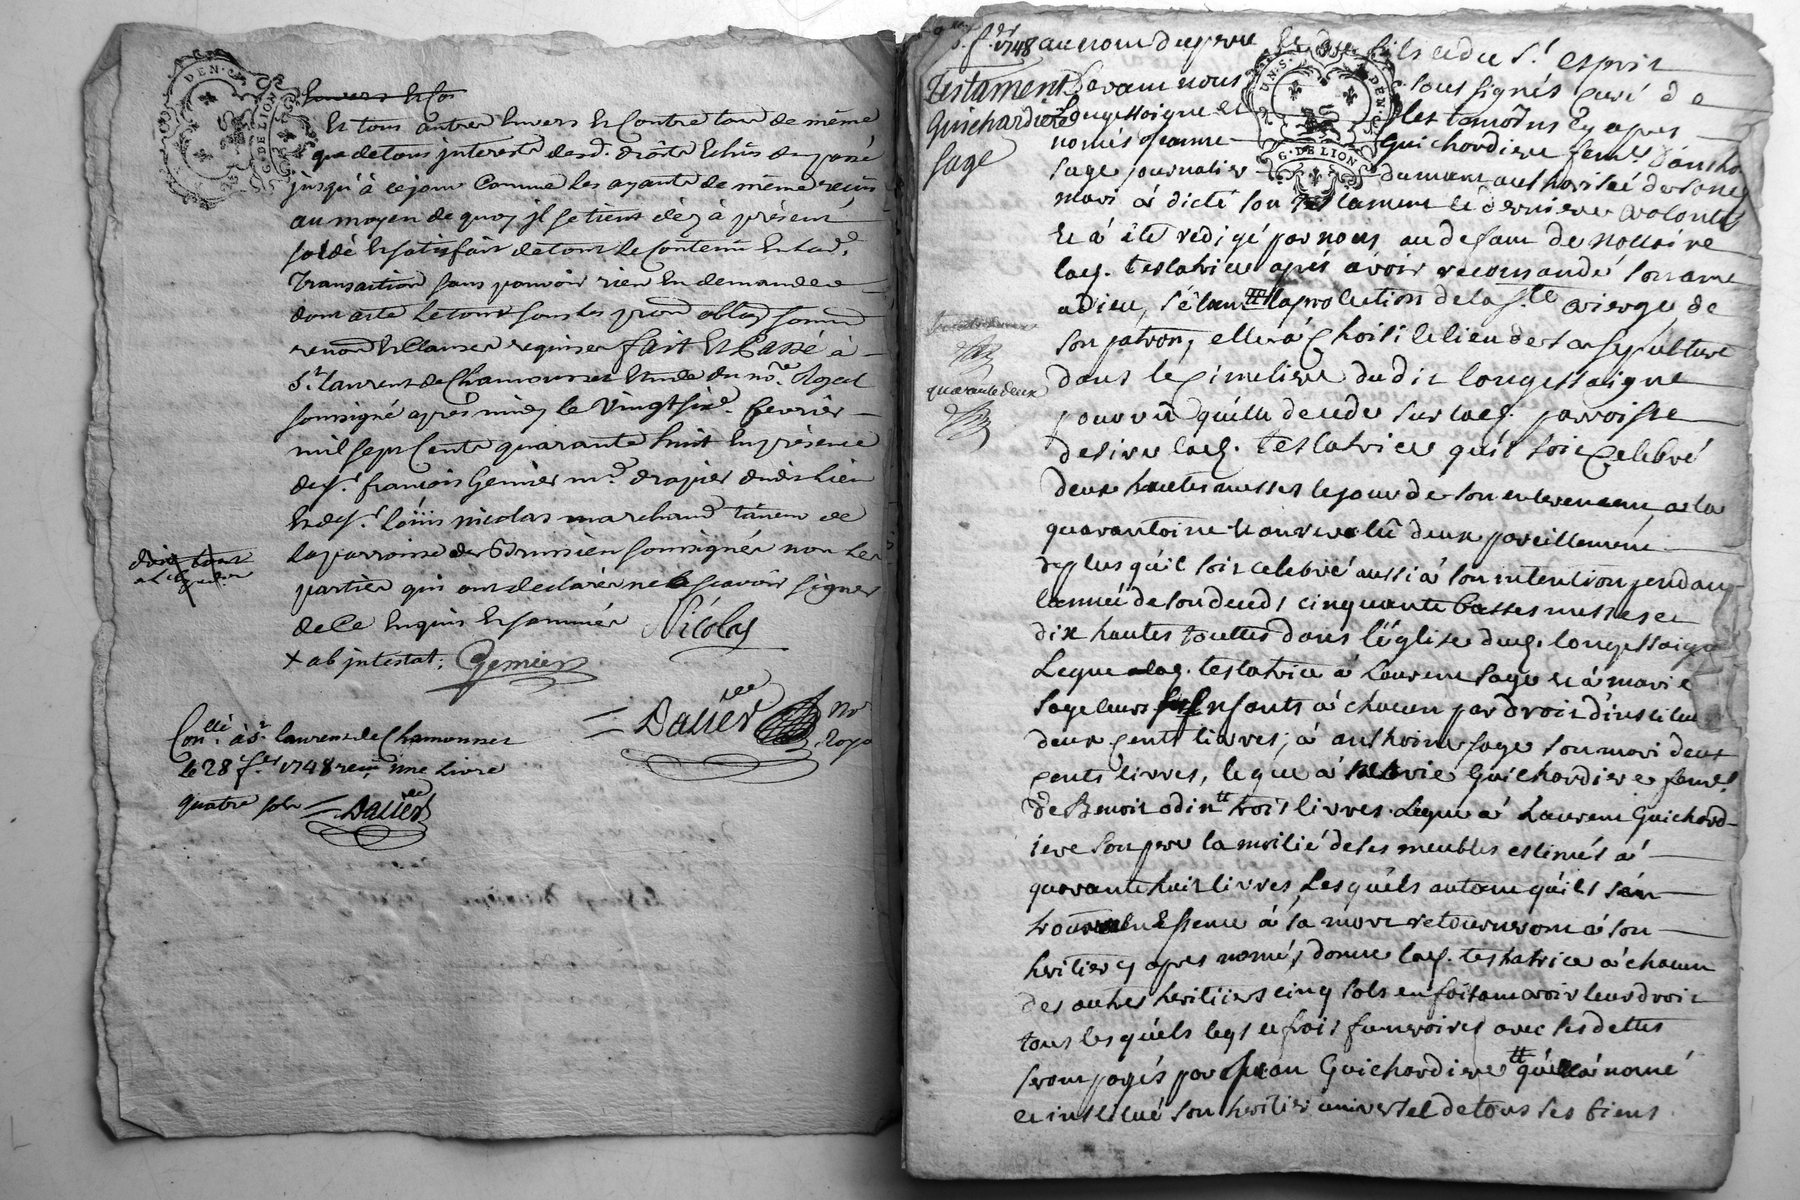 Envers et Con
Et tous autres Envers Et Contre tout de même
que de tous interests desd. droits Echus du passé
jusqu'à ce jour Comme les ayants de même reçus
au moyen de quoy jl se tient dèz à présent
soldé Et satisfait de tout le Contenu En lad.e
Transaction sans pouvoir rien En demander
dont acte le tout sous les prom oblig soum
renon Et Clauses requises fait Et Passé à
St laurent de Chamousset Etude du no.re Royal
soussigné après midy le Vingt six.e fevrier
mil sept Cents quarante huit En présence
de Sr. françois Genier m.d drapier dudit lieu
Et de Sr. loüis nicolas marchand taneur de
la parroisse de soussignés non les
parties qui ont déclarées ne sçavoir signer
de Ce Enquis Et sommées Nicolas
+ ab jntestat; Genier
Dalier no.re Roya
Con.llé à St. laurent de Chamousset
le 28 f.er 1748 reçu une livre
quatre sols Dalier
G. DE LION
DEN.
f.er 1748 au nom du pere Et du fils et du St. esprit
Testament
Guichardiere
Sage
Devant nous sous signés curé de
Longessaigne et les tamoins cy apres
només jeanne Guichardiere fem.e d'antho
Sage journalier dument authorisée de son
mari à dicté son Testament et derniere volonté
Et à été redigé par nous au defaut de nottaire
lad. testatrice après avoir recomandé son ame
a dieu, la protection de la Ste vierge de
son patron, elle a choisi le lieu de sa sepulture
dans le cimetiere dudit longessaigne
quarante deux
pourvû qu'elle decede sur lad. parroisse
desire lad. testatrice qu'il soit celebré
deux hautes messes le jour de son enterrement, a la
quarantaine et deux pareillement
de plus qu'il soit celebré aussi à son intention pendant
lannée de son deceds cinquante basses messes et
dix hautes touttes dans l'église dud. longessaigne
Legue lad. testatrice à Laurent Sage et à marie
Sage leurs Enfants à chacun par droit d'institu
deux cents livres, à anthoine Sage son mari deux
cents livres, legue à marie Guichardiere fem.e
de Benoit odin trois livres. Legue à Laurent Guichard-
iere son pere la moitié de ses meubles estimés à
quarante huit livres, Lesquels autant qu'ils s'en
trouveront En Essence à sa mort retourneront à son
heritier cy apres nomé, donne lad. testatrice à chacun
des autres heritiers cinq sols en faisant voir leur droit
tous lesquels legs et frais funeraires avec ses dettes
seront payés par Jean Guichardiere qu'ella nomé
et institué son heritier universel de tous ses biens
G. DE LION
UN.S. DEN.